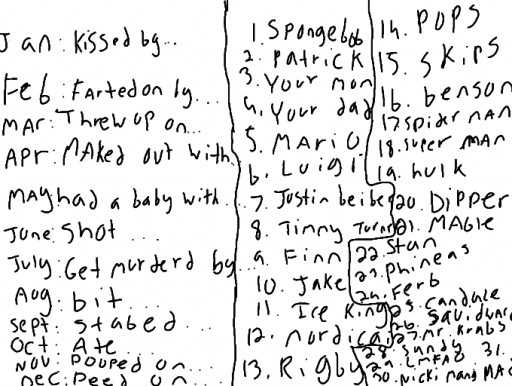 Jan: Kissed by...
Feb: Farted on by...
MAr: Threw up on...
APr: MAKed out with
MAY had a baby with...
June: Shot ...
July: Get murderd by...
Aug: bit....
Sept: Stabed...
OCT: Ate...
NOV: Pooped on...
DEC: Peed on...
1. Spongebob
2. Patrick
3. Your mom
4. Your dad
5. MARIO
6. LUIGI
7. Justin beiber
8. Tinny Turner
9. Finn
10. Jake
11. Ice King
12. nordica
13. Rigby
14. POPS
15. SKiPS
16. benson
17. Spider MAN
18. Super MAn
19. hulk
20. Dipper
21. MAble
22. Stan
23. Phineas
24. Ferb
25. Candace
26. Squidward
27. mr. Krabs
28. Sandy
29. LMFAO
30. Nicki
31.